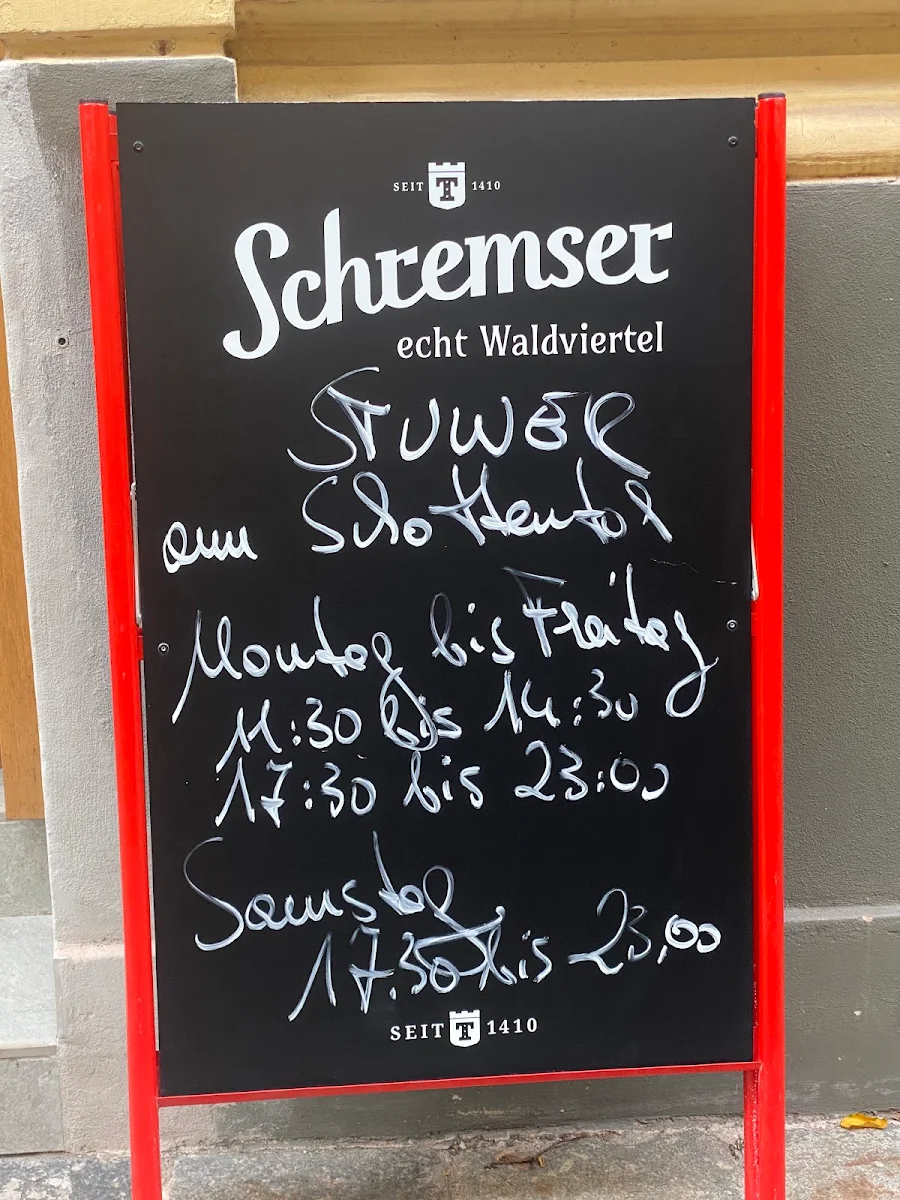 SEIT T 1410
Schremser
echt Waldviertel
STUWER
am Schottentor
Montag bis Freitag
11:30 bis 14:30
17:30 bis 23:00
Samstag
17:30 bis 23,00
SEIT T 1410